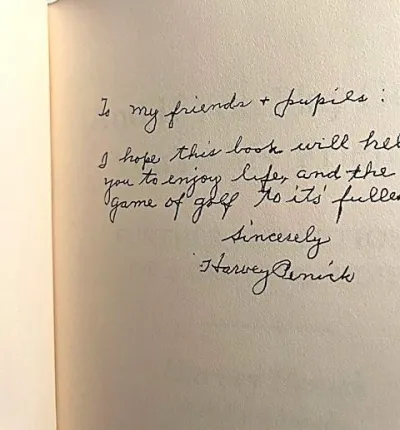 To my friends + pupils :
I hope this book will hel
you to enjoy life, and the
game of golf to its' fulles
Sincerely
Harvey Penick